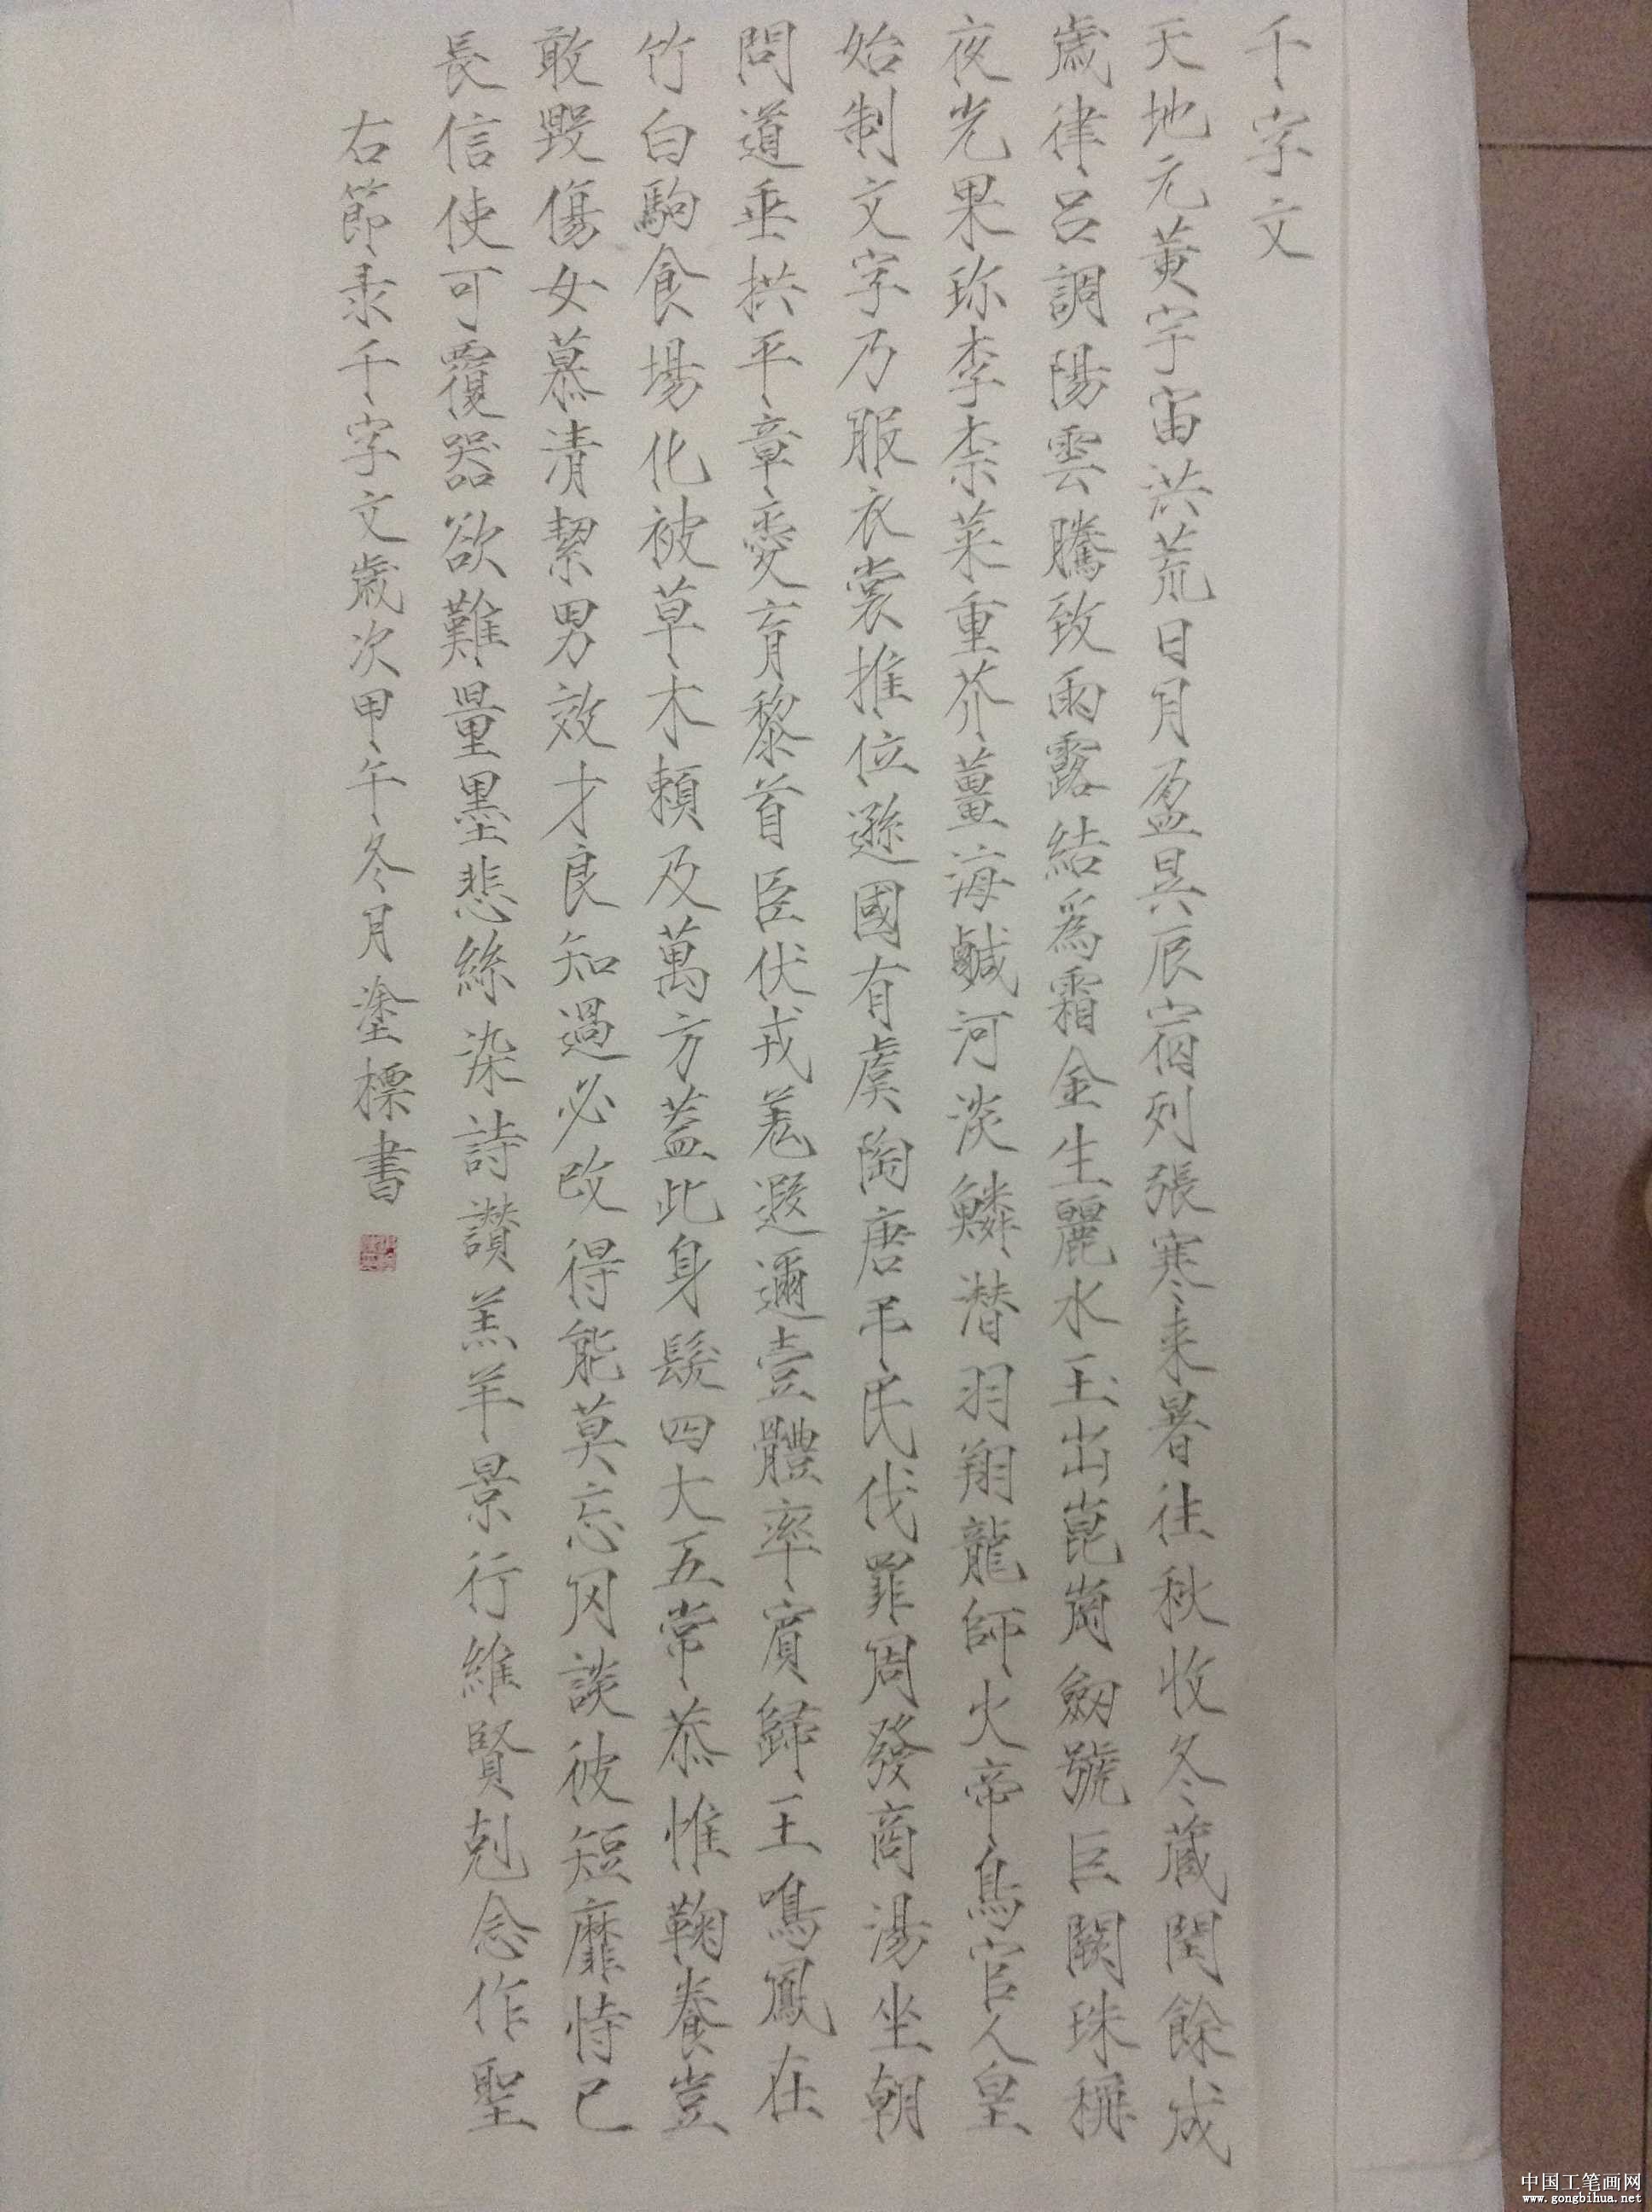 千字文
天地元黃宇宙洪荒日月盈昃辰宿列張寒来暑往秋收冬藏閏餘成
歲律呂調陽雲騰致雨露結為霜金生麗水玉出崑崗劒號巨闕珠稱
夜光果珎李柰菜重芥薑海鹹河淡鱗潛羽翔龍師火帝鳥官人皇
始制文字乃服衣裳推位遜國有虞陶唐弔民伐罪周發商湯坐朝
問道垂拱平章愛育黎首臣伏戎羌遐邇壹體率賓歸王鳴鳳在
竹白駒食場化被草木賴及萬方蓋此身髮四大五常恭惟鞠養豈
敢毀傷女慕清絜男效才良知過必改得能莫忘罔談彼短靡恃己
長信使可覆器欲難量墨悲絲染詩讚羔羊景行維賢剋念作聖
右節录千字文歲次甲午冬月塗標書
中国工笔画网
www.gongbihua.net